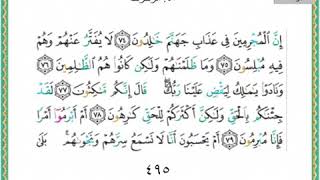 إِنَّ ٱلْمُجْرِمِينَ فِى عَذَابِ جَهَنَّمَ خَـٰلِدُونَ ٧٤ لَا يُفَتَّرُ عَنْهُمْ وَهُمْ
فِيهِ مُبْلِسُونَ ٧٥ وَمَا ظَلَمْنَـٰهُمْ وَلَـٰكِن كَانُوا۟ هُمُ ٱلظَّـٰلِمِينَ ٧٦
وَنَادَوْا۟ يَـٰمَـٰلِكُ لِيَقْضِ عَلَيْنَا رَبُّكَ ۖ قَالَ إِنَّكُم مَّـٰكِثُونَ ٧٧ لَقَدْ
جِئْنَـٰكُم بِٱلْحَقِّ وَلَـٰكِنَّ أَكْثَرَكُمْ لِلْحَقِّ كَـٰرِهُونَ ٧٨ أَمْ أَبْرَمُوٓا۟ أَمْرًا
فَإِنَّا مُبْرِمُونَ ٧٩ أَمْ يَحْسَبُونَ أَنَّا لَا نَسْمَعُ سِرَّهُمْ وَنَجْوَىٰهُم ۚ بَلَىٰ
٤٩٥